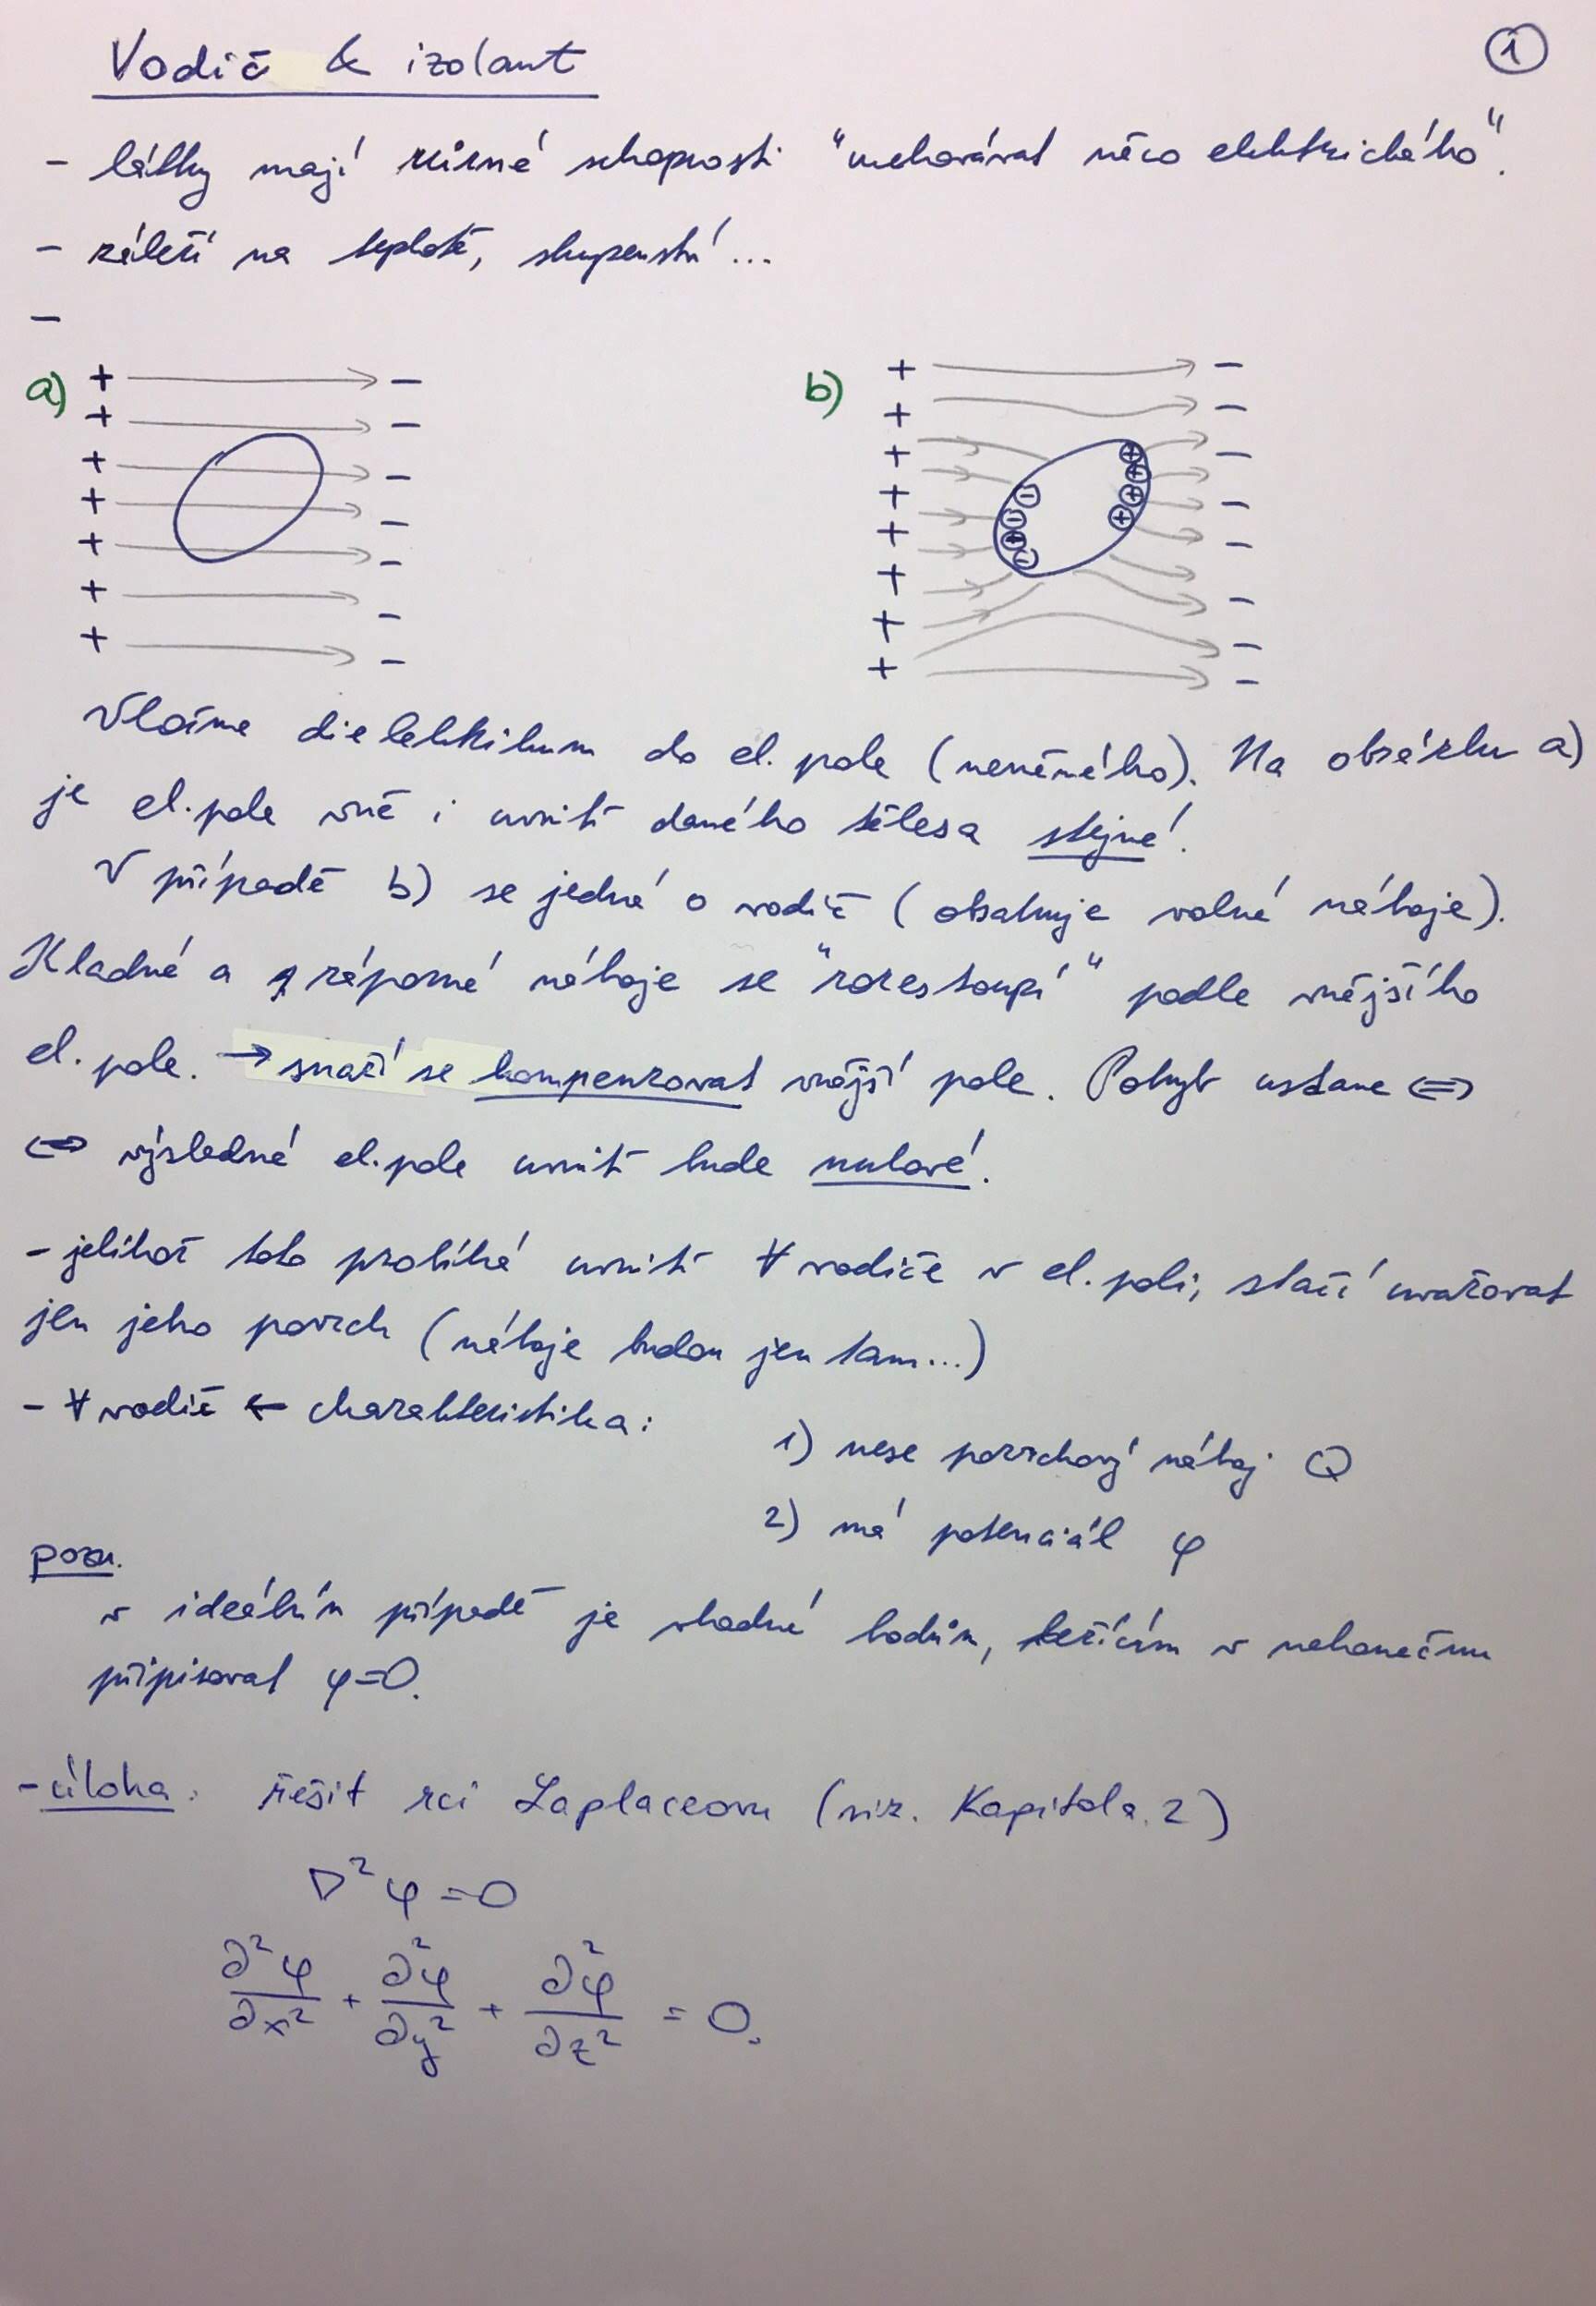 Vodič & izolant
1
- látky mají různé schopnosti "uchovávat něco elektrického".
- záleží na teplotě, skupenství...
-
a) + - b) + -
+ - + -
+ - + -
+ - + -
+ - + -
+ - + -
+ - + -
+ -
Vložme dielektrikum do el. pole (neměnného). Na obrázku a)
je el. pole vně i uvnitř daného tělesa stejné.
V případě b) se jedná o vodič (obsahuje volné náboje).
Kladné a záporné náboje se "rozestoupí" podle vnějšího
el. pole. → snaží se kompenzovat vnější pole. Pohyb ustane ⇔
⇔ výsledné el. pole uvnitř bude nulové.
- jelikož toto probíhá uvnitř ∀ vodiče v el. poli, stačí uvažovat
jen jeho povrch (náboje budou jen tam...)
- ∀ vodič ← charakteristika:
1) nese povrchový náboj Q
2) má potenciál φ
pozn.
v ideálním případě je vhodné bodům, ležícím v nekonečnu
připisovat φ=0.
- úloha: řešit rci Laplaceovu (viz. Kapitola 2)
∇²φ=0
∂²φ/∂x² + ∂²φ/∂y² + ∂²φ/∂z² = 0.